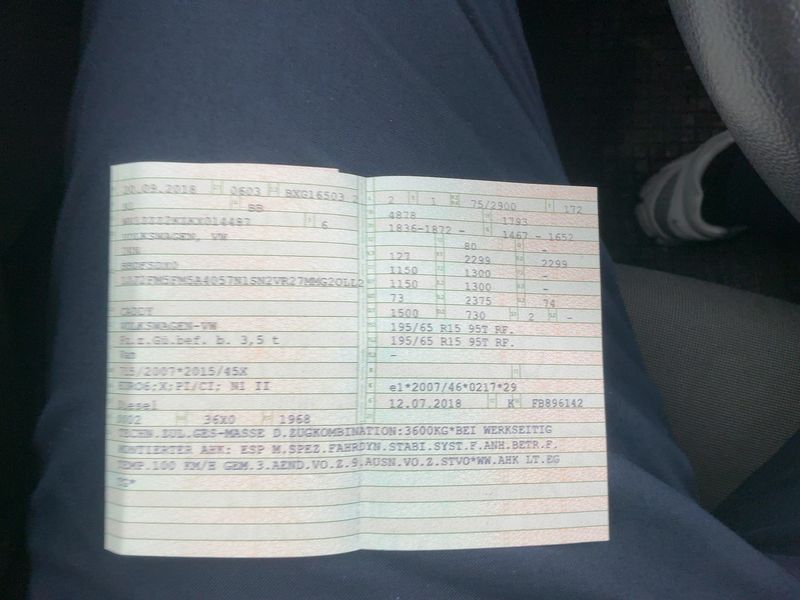 20.09.2018 0603 BXG16503 2
BB
6
VOLKSWAGEN, VW
CADDY
VOLKSWAGEN-VW
Fz.z.Gü.bef. b. 3,5 t
Van
715/2007*2015/45X
EURO6;X;PI/CI; NI II
Diesel
0002 36X0 1968
2 1 75/2900 172
4878 1793
1836-1872 - 1467 - 1652
80 -
127 2299 2299
1150 1300 -
1150 1300 -
73 2375 74
1500 730 2 -
195/65 R15 95T RF.
195/65 R15 95T RF.
-
e1*2007/46*0217*29
12.07.2018 K FB896142
TECHN.ZUL.GES-MASSE D.ZUGKOMBINATION:3600KG*BEI WERKSEITIG
MONTIERTER AHK: ESP M.SPEZ.FAHRDYN.STABI.SYST.F.ANH.BETR.F.
TEMP.100 KM/H GEM.3.AEND.VO.Z.9.AUSN.VO.Z.STVO*WW.AHK LT.EG
TG*